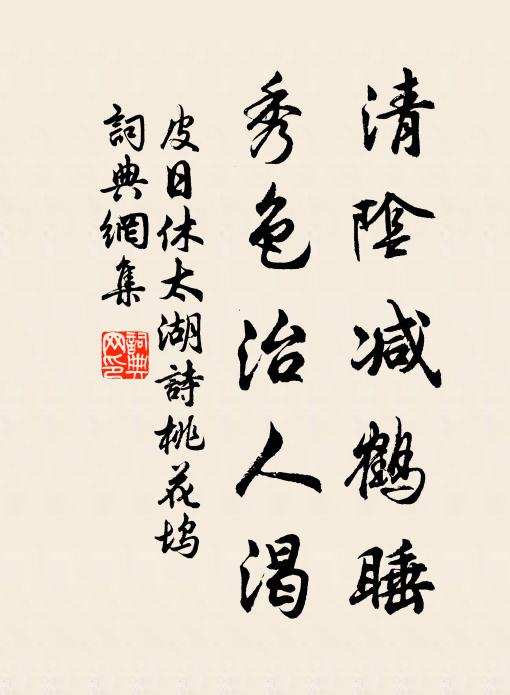 清陰減鶴睡
秀色治人渴
皮日休太湖詩桃花塢
詞典網集
詞典网印